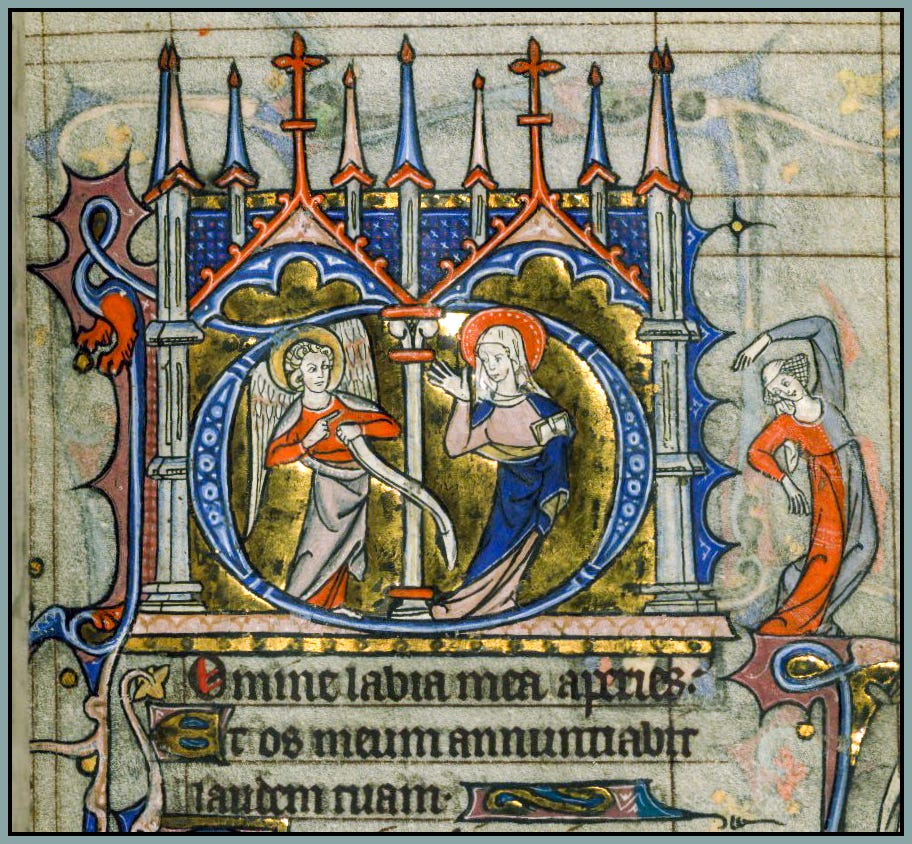 DOmine labia mea aperies:
Et os meum annuntiabit
laudem tuam.